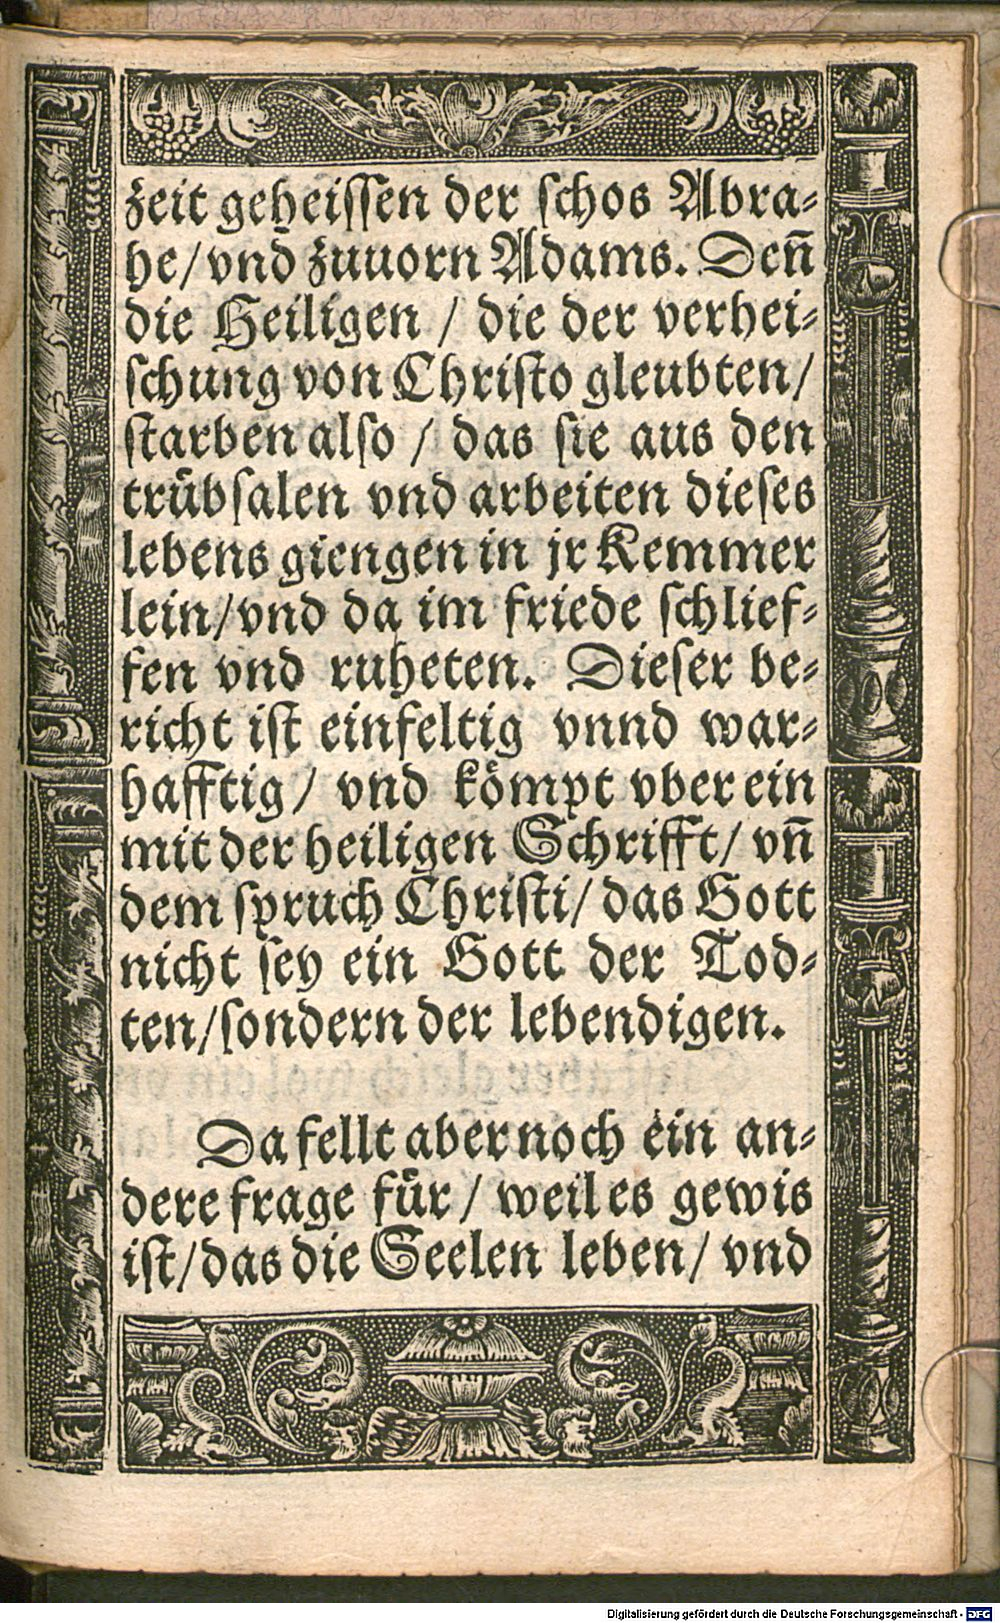 zeit geheiſſen der ſchos Abra⸗
he/vnd zuuorn Adams. Den̄
die Heiligen / die der verhei⸗
ſchung von Chriſto gleubten/
ſtarben alſo / das ſie aus den
truͤbſalen vnd arbeiten dieſes
lebens giengen in jr Kemmer
lein/vnd da im friede ſchlief⸗
fen vnd ruheten. Dieſer be⸗
richt iſt einfeltig vnnd war⸗
hafftig/ vnd koͤmpt vber ein
mit der heiligen Schrifft/ vn̄
dem ſpruch Chriſti/ das Gott
nicht ſey ein Gott der Tod⸗
ten/ſondern der lebendigen.
Da fellt aber noch ein an⸗
dere frage fuͤr/ weil es gewis
iſt/das die Seelen leben/ vnd
Digitalisierung gefördert durch die Deutsche Forschungsgemeinschaft - DFG